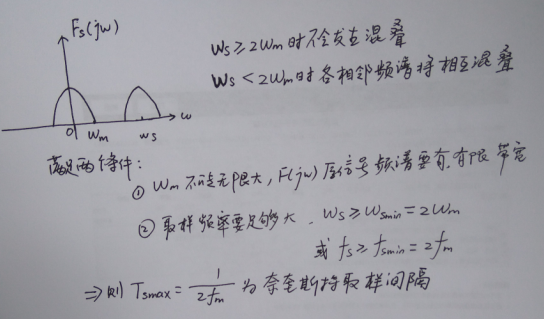 Fs(jw)
ws≥2wm时不会发生混叠
ws<2wm时各相邻频谱将相互混叠
0 wm ws w
满足两条件:
① wm不能无限大,F(jw)原信号频谱要有有限带宽
② 取样频率要足够大.ws≥wsmin=2wm
或 fs≥fsmin=2fm
⇒则 Tsmax=1/2fm 为奈奎斯特取样间隔